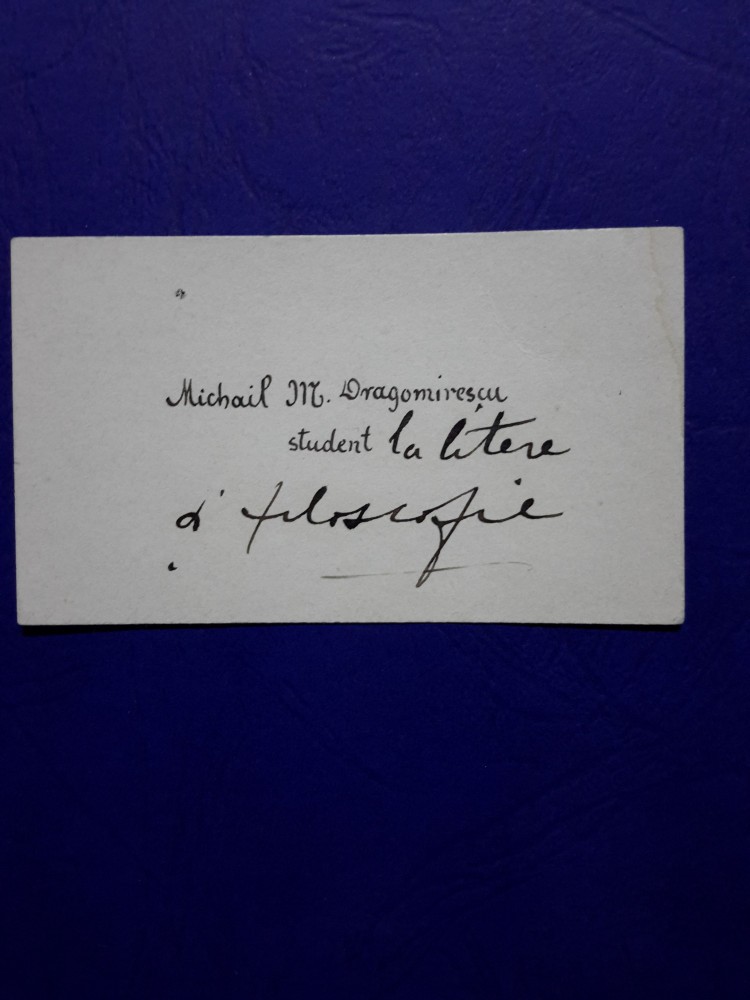 Michail M. Dragomirescu
student la litere
și filosofie